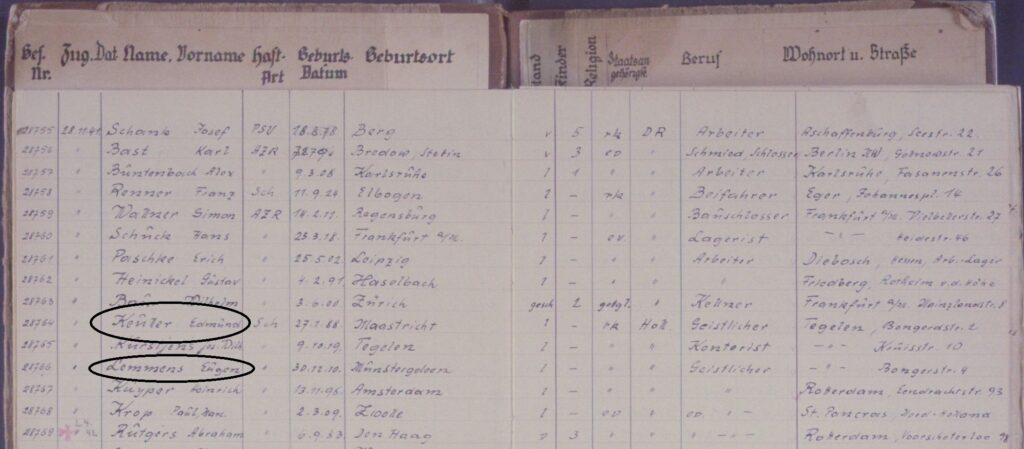 Gef. Nr. Zug. Dat Name, Vorname Haft-Art Geburts-Datum Geburtsort Stand Kinder Religion Staatsangehörigk. Beruf Wohnort u. Straße
28755 28.11.41 Schank Josef PSV 18.8.78 Berg v 5 rk DR Arbeiter Aschaffenburg, Seestr. 22.
28756 " Bast Karl AZR Bredow, Stetin v 3 ev " Schmied, Schlosser Berlin
28757 " Büntenbach Alex " 9.3.08 Karlsrühe l 1 " " Arbeiter Karlsrühe, Fasanenstr. 26
28758 " Renner Franz Sch 11.9.24 Elbogen l - rk " Beifahrer Eger, Johannespl. 14
28759 " Wallner Simon AZR 14.2.11. Regensbürg l - " " Baüschlosser Frankfürt a/M. 27
28760 " Schück Hans " 25.3.18. Frankfürt a/M. l - ev. " Lagerist - " - Heidestr. 46
28761 " Paschke Erich " 25.5.02 Leipzig l - " " Arbeiter Diebosch, Hessen, Arb.-Lager
28762 " Heinickel Güstav " 4.2.91 Haselbach l - " " " Friedberg, Rotheim v.d. Höhe
28763 " Wilhelm " 3.6.00 Zürich gesch 2 " Kellner Frankfurt a/M. 8
28764 " Edmünd Sch 27.1.88 Maastricht l - rk Holl. Geistlicher Tegelen, Bongerdstr. 2
28765 " " 9.10.19. Tegelen l - " " Kontorist - " - Krüisstr. 10
28766 " Lemmens Eügen " 30.12.10. Münstergeleen l - " " Geistlicher - " - Bongerstr. 4
28767 " Küyper Heinrich " 13.11.96. Amsterdam l - " " " Roterdam, 93
28768 " Krop " 2.3.09. Zwolle l - ev " ev. - " - St. Pancras, Nord-Holland
28769 " Rütgers Abraham " Den Haag v 3 " " " - " - Roterdam,